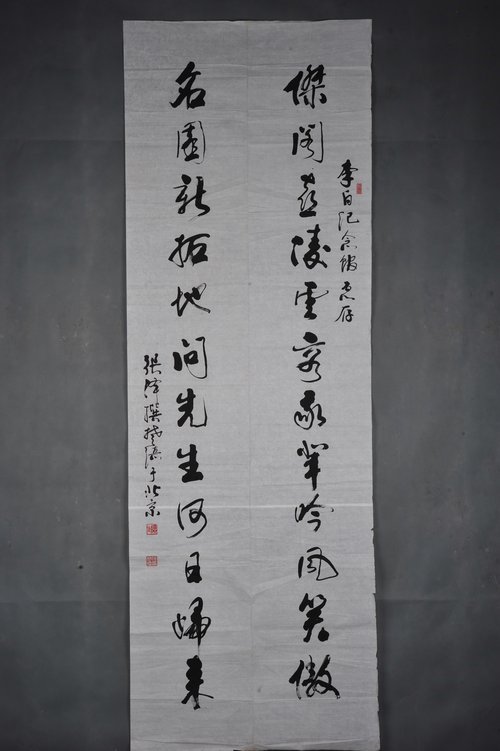 李白紀念館惠存
傑閣喜凌雲容我輩吟風笑傲
名園新拓地問先生何日歸來
張 撰 于北京